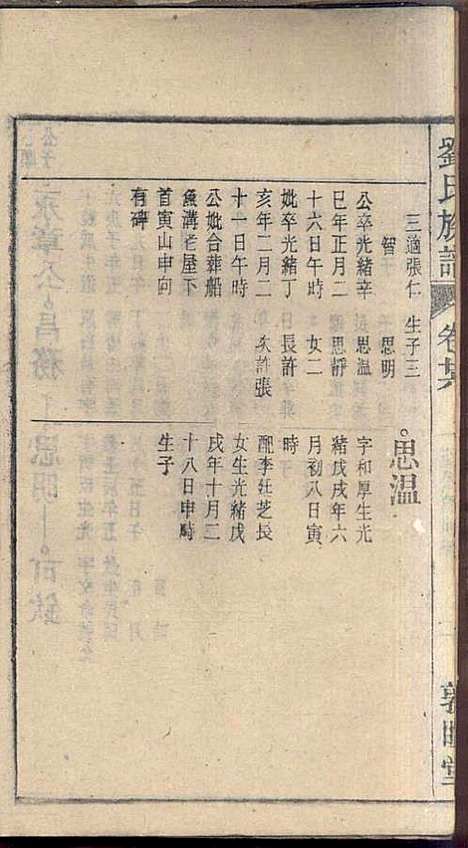 劉氏族譜
卷廿六
敦睦堂
三適張仁 生子三
智 思明
公卒光緒辛 思溫
巳年正月二 思靜
十六日午時 女二
妣卒光緒丁 長許
亥年二月二 次許張
十一日午時
公妣合葬船
魚溝老屋下
首寅山申向
有碑
思溫
字和厚生光
緒戊戌年六
月初八日寅
時
配李紅芝長
女生光緒戊
戌年十月二
十八日申時
生子